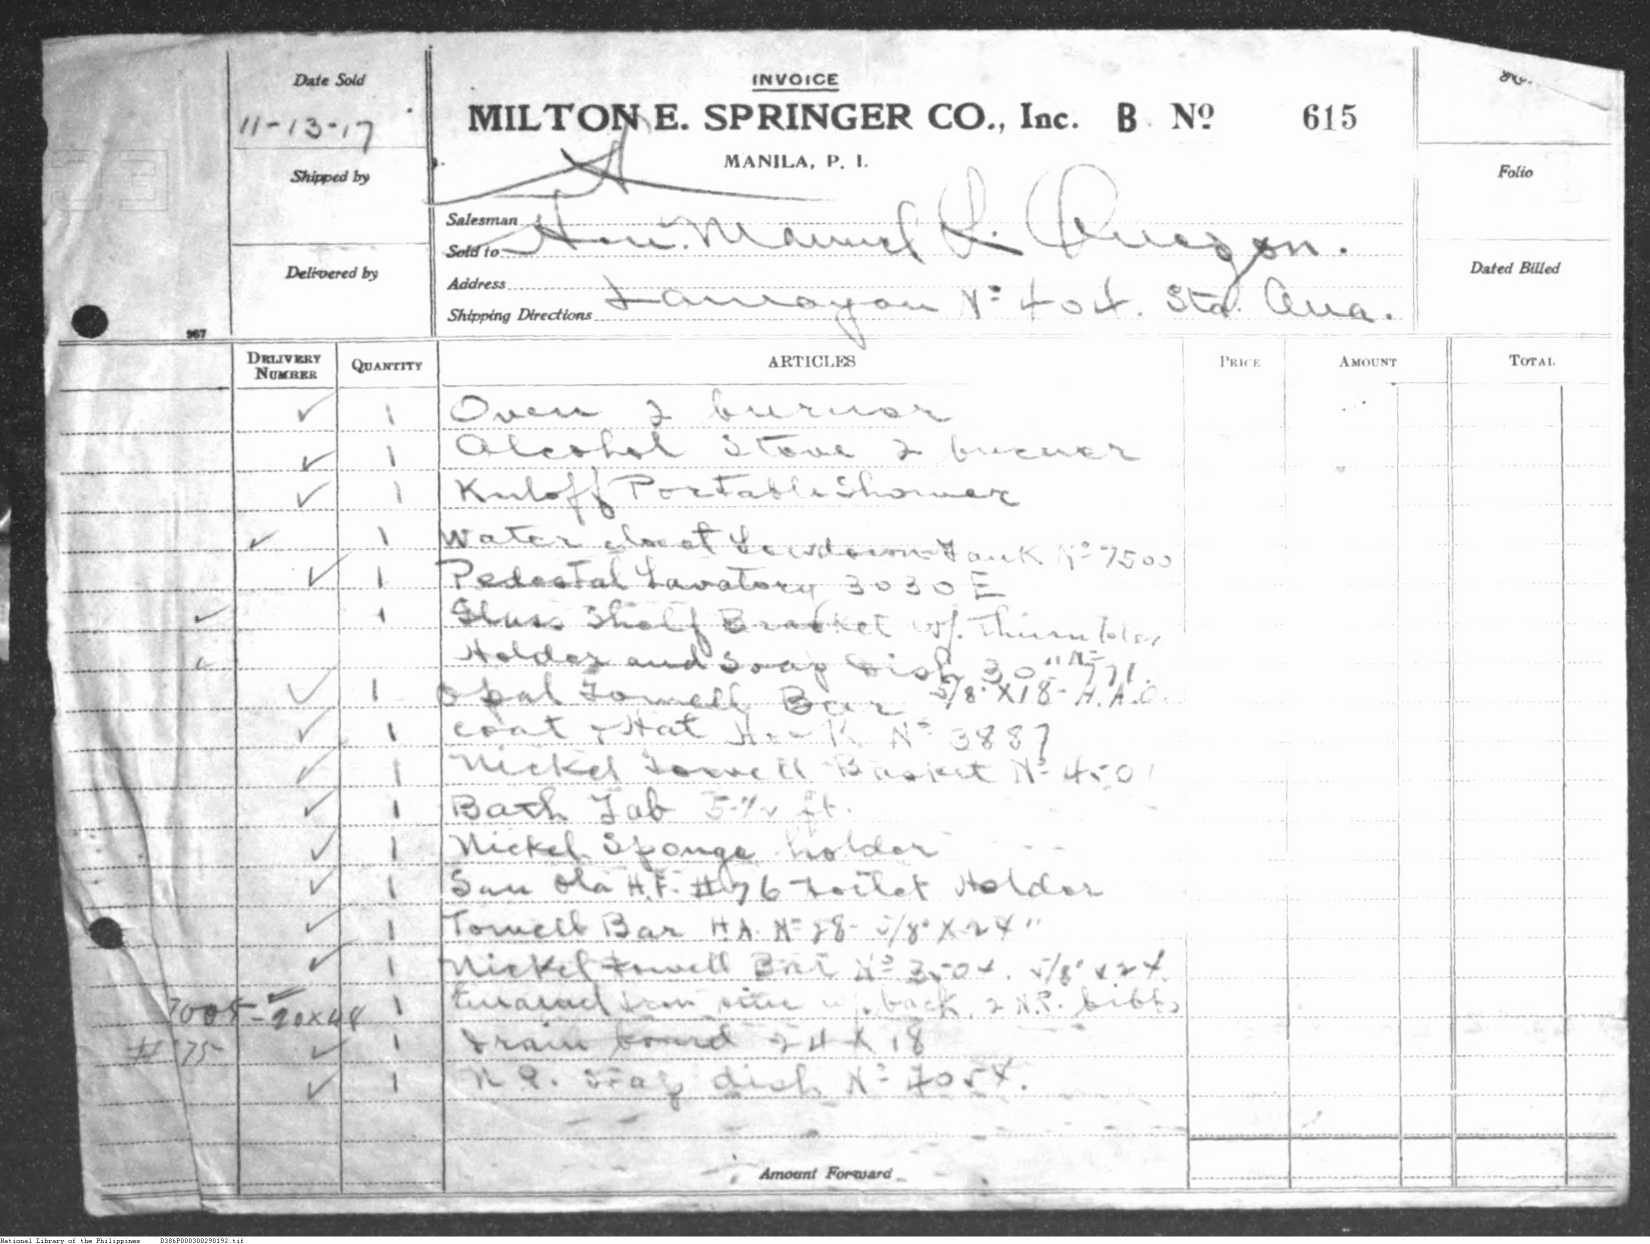 Date Sold
11-13-17
Shipped by
Delivered by
967
INVOICE
MILTON E. SPRINGER CO., Inc. B Nº 615
MANILA, P. I.
Salesman
Sold to Hon. Manuel L. Quezon.
Address
Shipping Directions Tanduay Nº 404. Sta. Ana.
Folio
Dated Billed
DELIVERY NUMBER QUANTITY ARTICLES PRICE AMOUNT TOTAL
✓ 1 Oven 2 burner
✓ 1 Alcohol Stove 2 burner
✓ 1 Portable Shower
✓ 1 Water closet Lowdown Tank Nº 7500
✓ 1 Pedestal Lavatory 3030 E
✓ 1 Glass Shelf Bracket w/. Tumbler
✓ Holder and Soap Dish 30" Nº 771.
✓ 1 Opal Towell Bar 5/8" X 18 - H.A.C.
✓ 1 Coat & Hat Hook Nº 3887
✓ 1 Nickel Towell Basket Nº 450
✓ 1 Bath Tub 5-1/2 ft.
✓ 1 Nickel Sponge holder
✓ 1 San Ola H.F. #76 toilet Holder
✓ 1 Towell Bar H.A. Nº 28- 5/8" X 24"
✓ 1 Nickel towell Bar Nº 3504. 5/8" x 24.
7005-20x48 ✓ 1 Enamel Iron w. back, 2 N.P. bibbs
#75 ✓ 1 Drain board 24 X 18
✓ 1 N.P. Soap dish Nº 4054.
Amount Forward
National Library of the Philippines D386P000300290192.tif